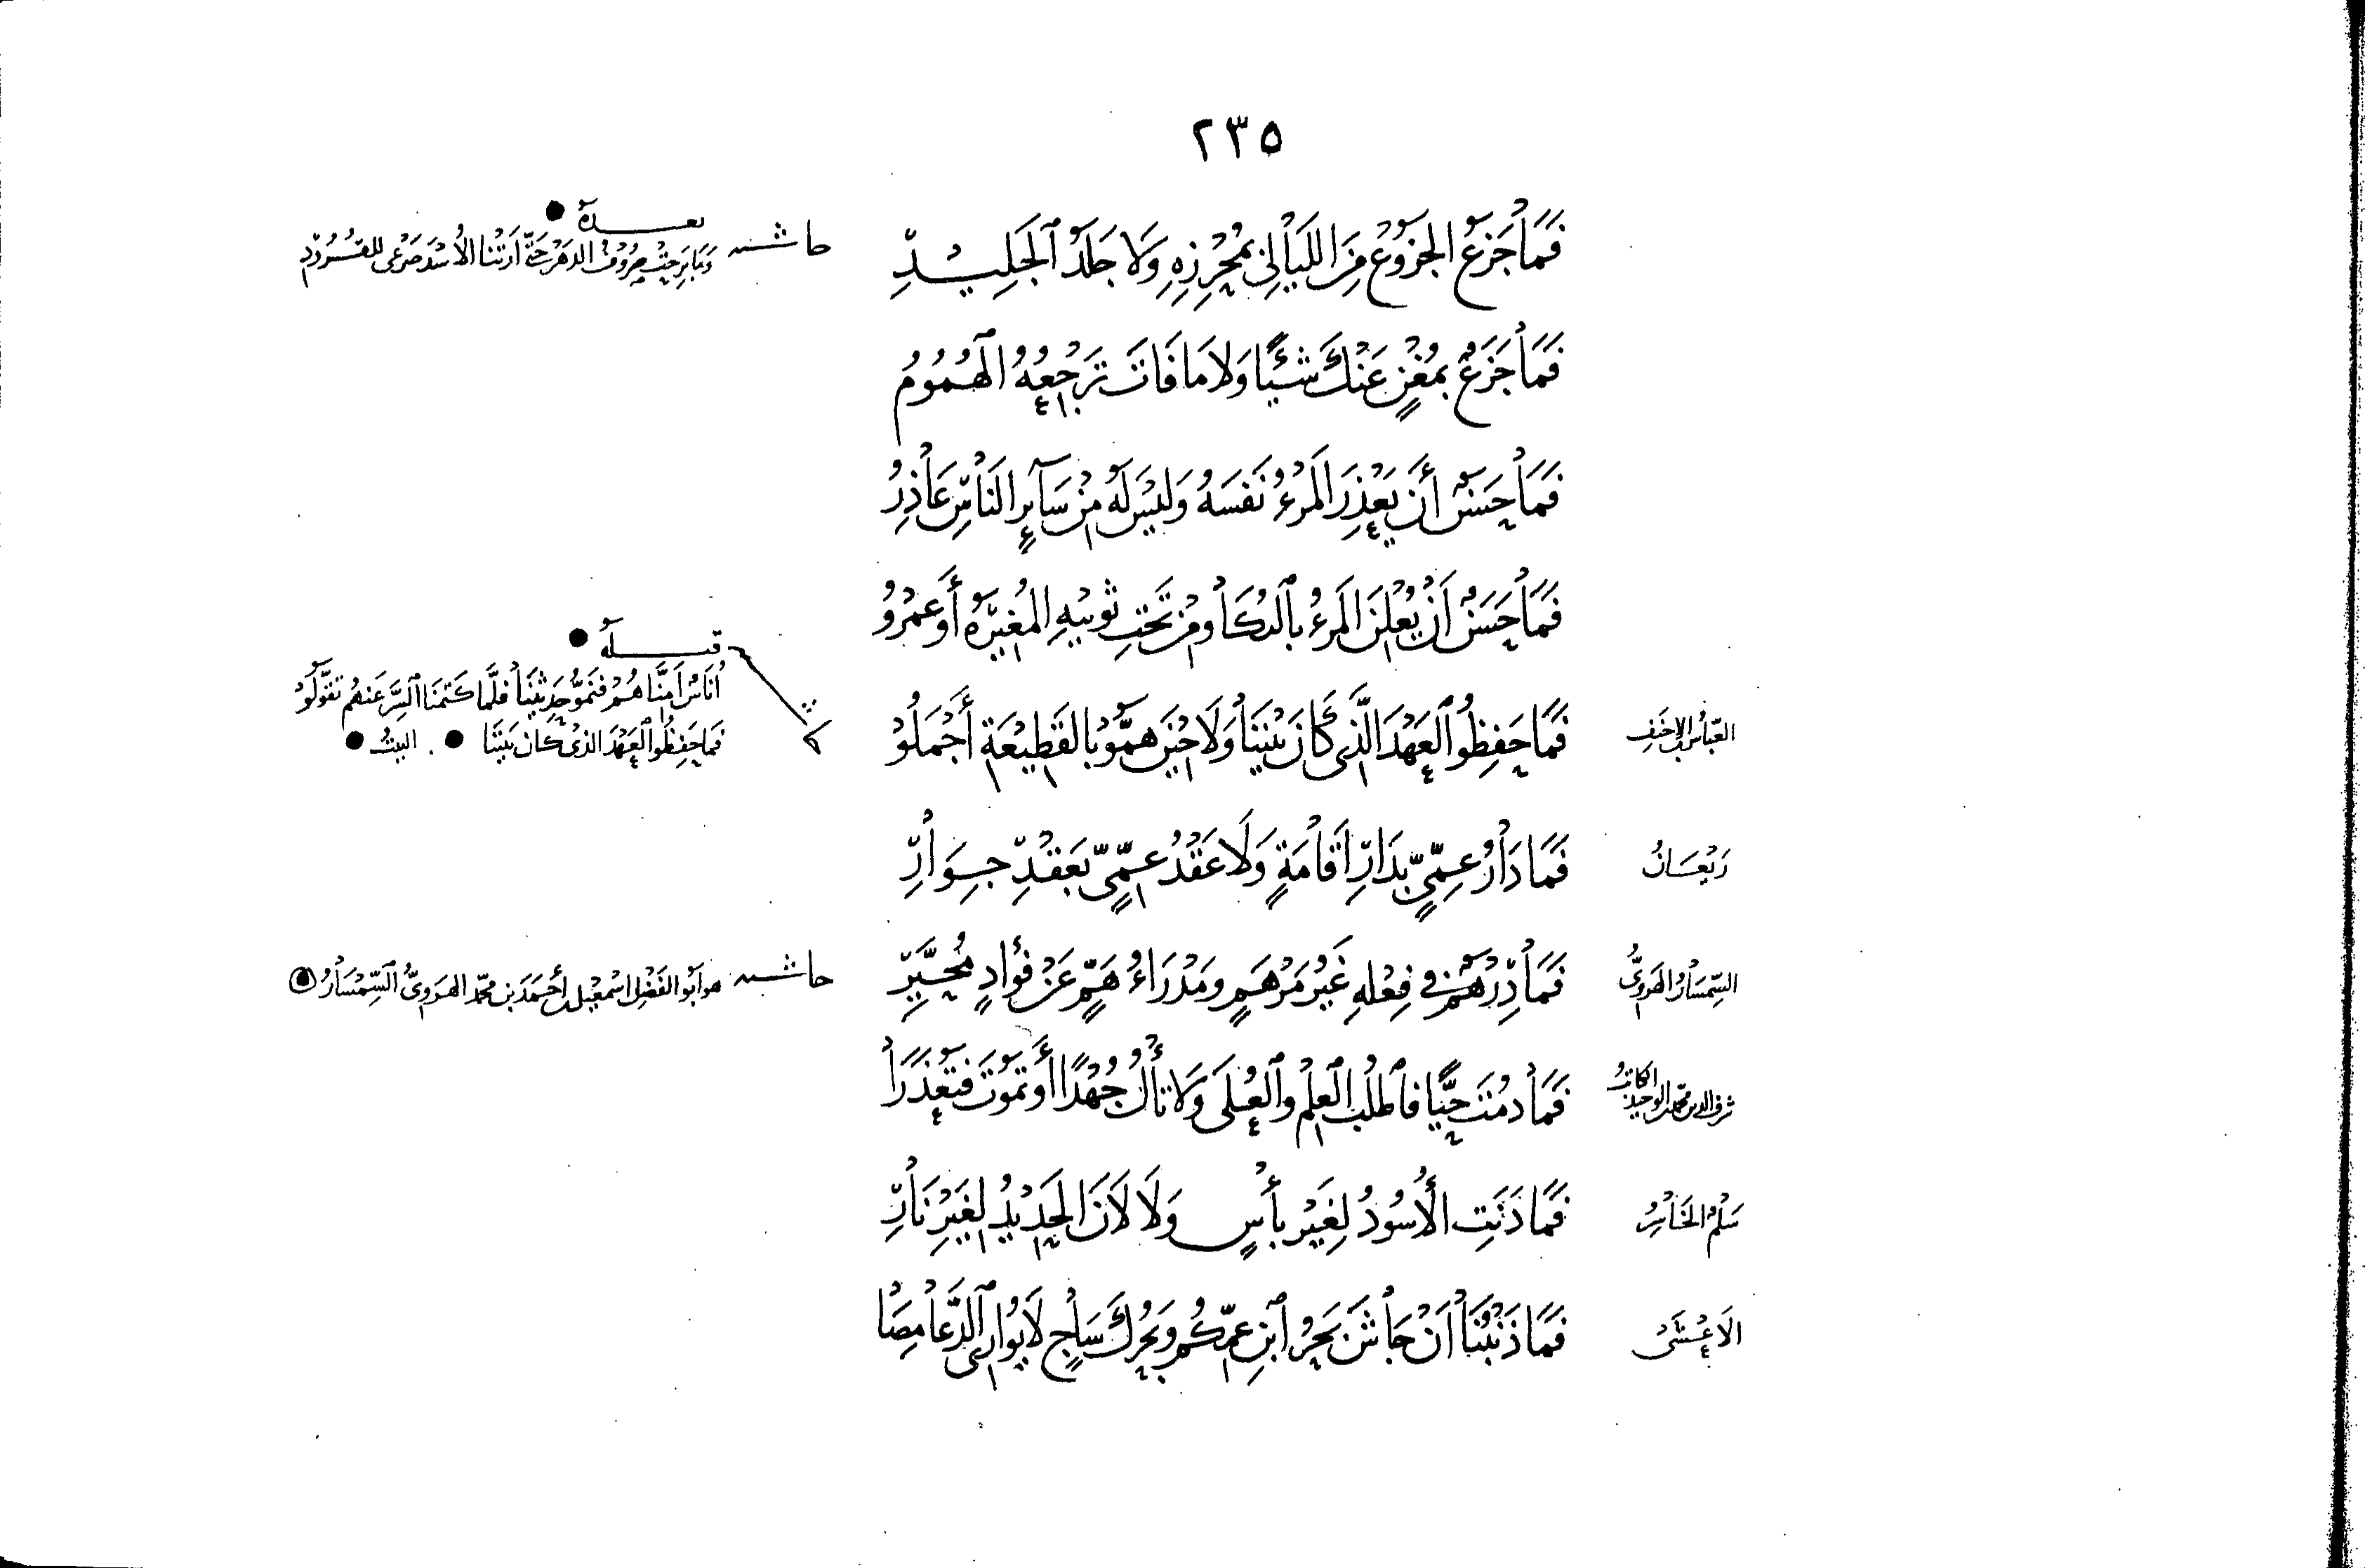 ٢٣٥
فَمَا جَزَعُ الجَزُوعُ مِنَ اللَّيَالِي بِمُحْرِزِهِ وَلَا جَلَدُ الجَلِيدِ
حاشية بعده
وَمَا بَرِحَتْ صُرُوفُ الدَّهْرِ حَتَّى أَرَتْنَا الأُسْدَ صَرْعَى للقُرُودِ
فَمَا جَزَعٌ بِمُغْنٍ عَنْكَ شَيْئًا وَلَا مَا فَاتَ تَرْجِعُهُ الهُمُومُ
فَمَا حَسَنٌ أَنْ يَعْذِرَ المَرْءُ نَفْسَهُ وَلَيْسَ لَهُ مِنْ سَآئِرِ النَّاسِ عَاذِرُ
فَمَا حَسَنٌ أَنْ يُعْلِنَ المَرْءُ بِالبُكَا وَمِنْ تَحْتِ ثَوْبَيْهِ المُغِيْرَةُ أَوْ عَمْرُو
العَبَّاسُ بن الاحنَفِ
فَمَا حَفِظُوا العَهْدَ الَّذِي كَانَ بَيْنَنَا وَلَا حِيْنَ هَمُّوْا بِالقَطِيْعَةِ أَجْمَلُوْا
قبله
أُنَاسٌ أَمِنَّا هُمْ فَنَمُّوْا حَدِيْثَنَا فَلَمَّا كَتَمْنَا السِّرَّ عَنْهُمْ تَقَوَّلُوْا
فَمَا حَفِظُوا العَهْدَ الذي كان بَيْنَنَا . البيتُ
رَيْعَانُ
فَمَا دَارُ عِمِّيٍّ بِدَارِ اَقَامَةٍ وَلَا عَقْدُ عِمِّيٍّ بِعَقْدِ جِوَارِ
السِّمسَارُ الهَرَوِيُّ
فَمَا دِرْهَمٌ في فِعْلِهِ غَيْرُ مَرْهَمٍ وَمَدْرَاءُ هَمٍّ عَنْ فُؤَادٍ مُحَيَّرِ
حاشية هو أَبُو الفَضْلِ اسْمعِيْل بن أَحْمَدَ بن محمّد الهَرَوِيُّ السِّمْسَارُ
شرف الدين محمد الوحيد الكاتبُ
فَمَا دُمْتَ حَيًّا فَاطْلُبِ العِلْمَ وَالعُلَى وَلَا تَأْلُ جُهْدًا أَوْ تَمُوْتَ فَتُعْذَرَا
سَلْمُ الخَاسِرُ
فَمَا دَنَتِ الأُسُودُ لِغَيْرِ بَأْسٍ وَلَا لَانَ الحَدِيْدُ لِغَيْرِ نَارِ
الاَعْشَى
فَمَا ذَنْبُنَا اَنْ جَاشَ بَحْرُ ابْنِ عَمِّكُمْ وَبَحْرُكَ سَاجٍ لَا يُوَارِي الدَّعَامِصَا